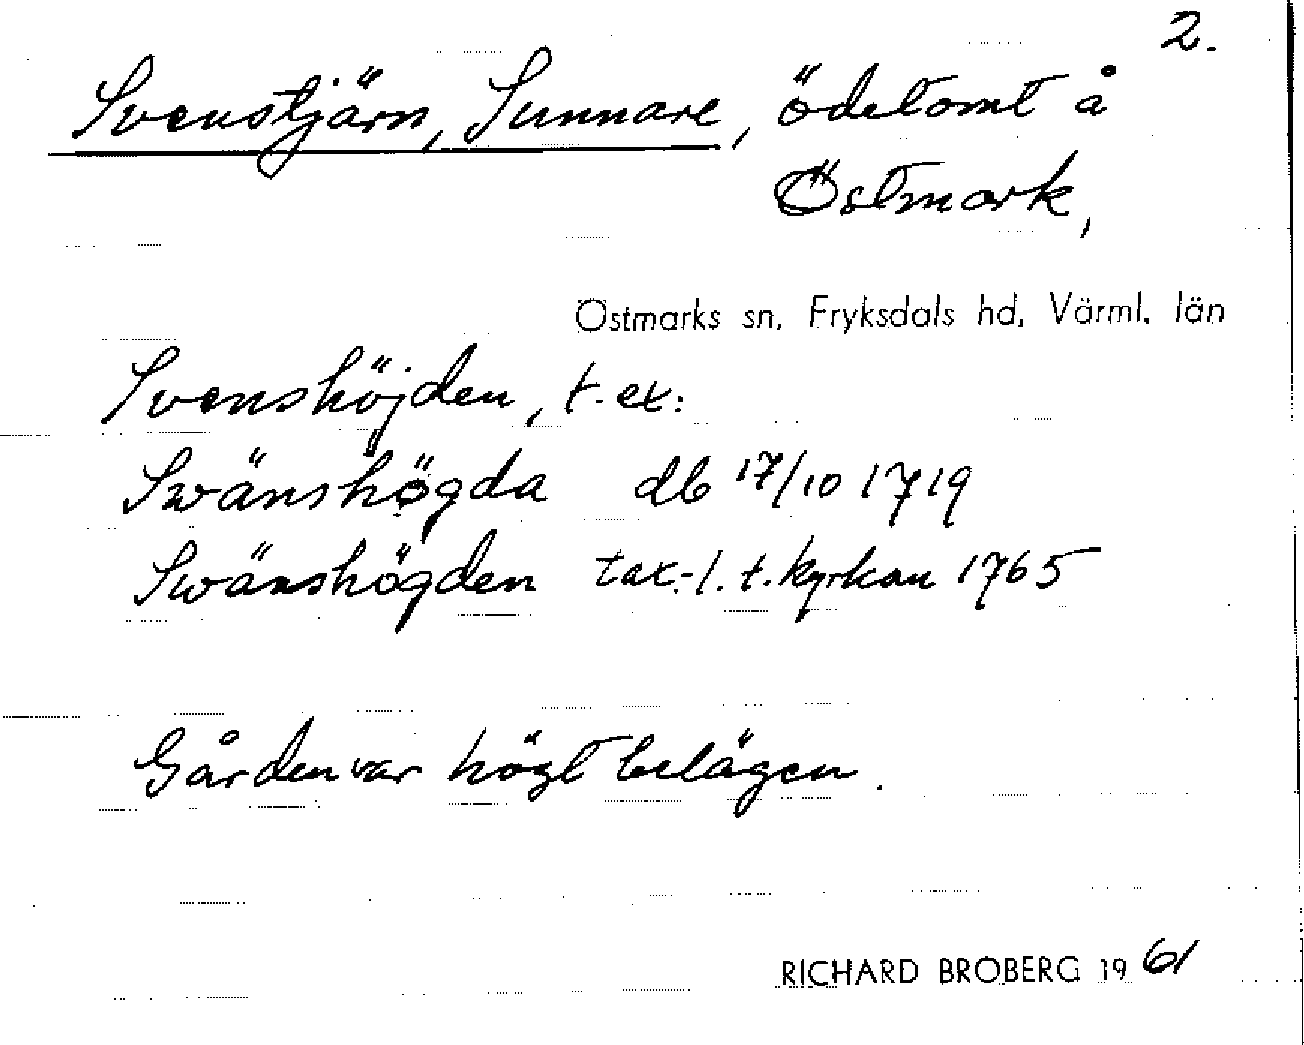 2.
Svenstjärn, Sunnare, ödetomt å
Östmark,
Östmarks sn, Fryksdals hd, Värml. län
Svenshöjden, t. ex:
Swänshögda db 17/10 1719
Swänshögden tax.-l. t. kyrkan 1765
Gården var högt belägen.
RICHARD BROBERG 1961